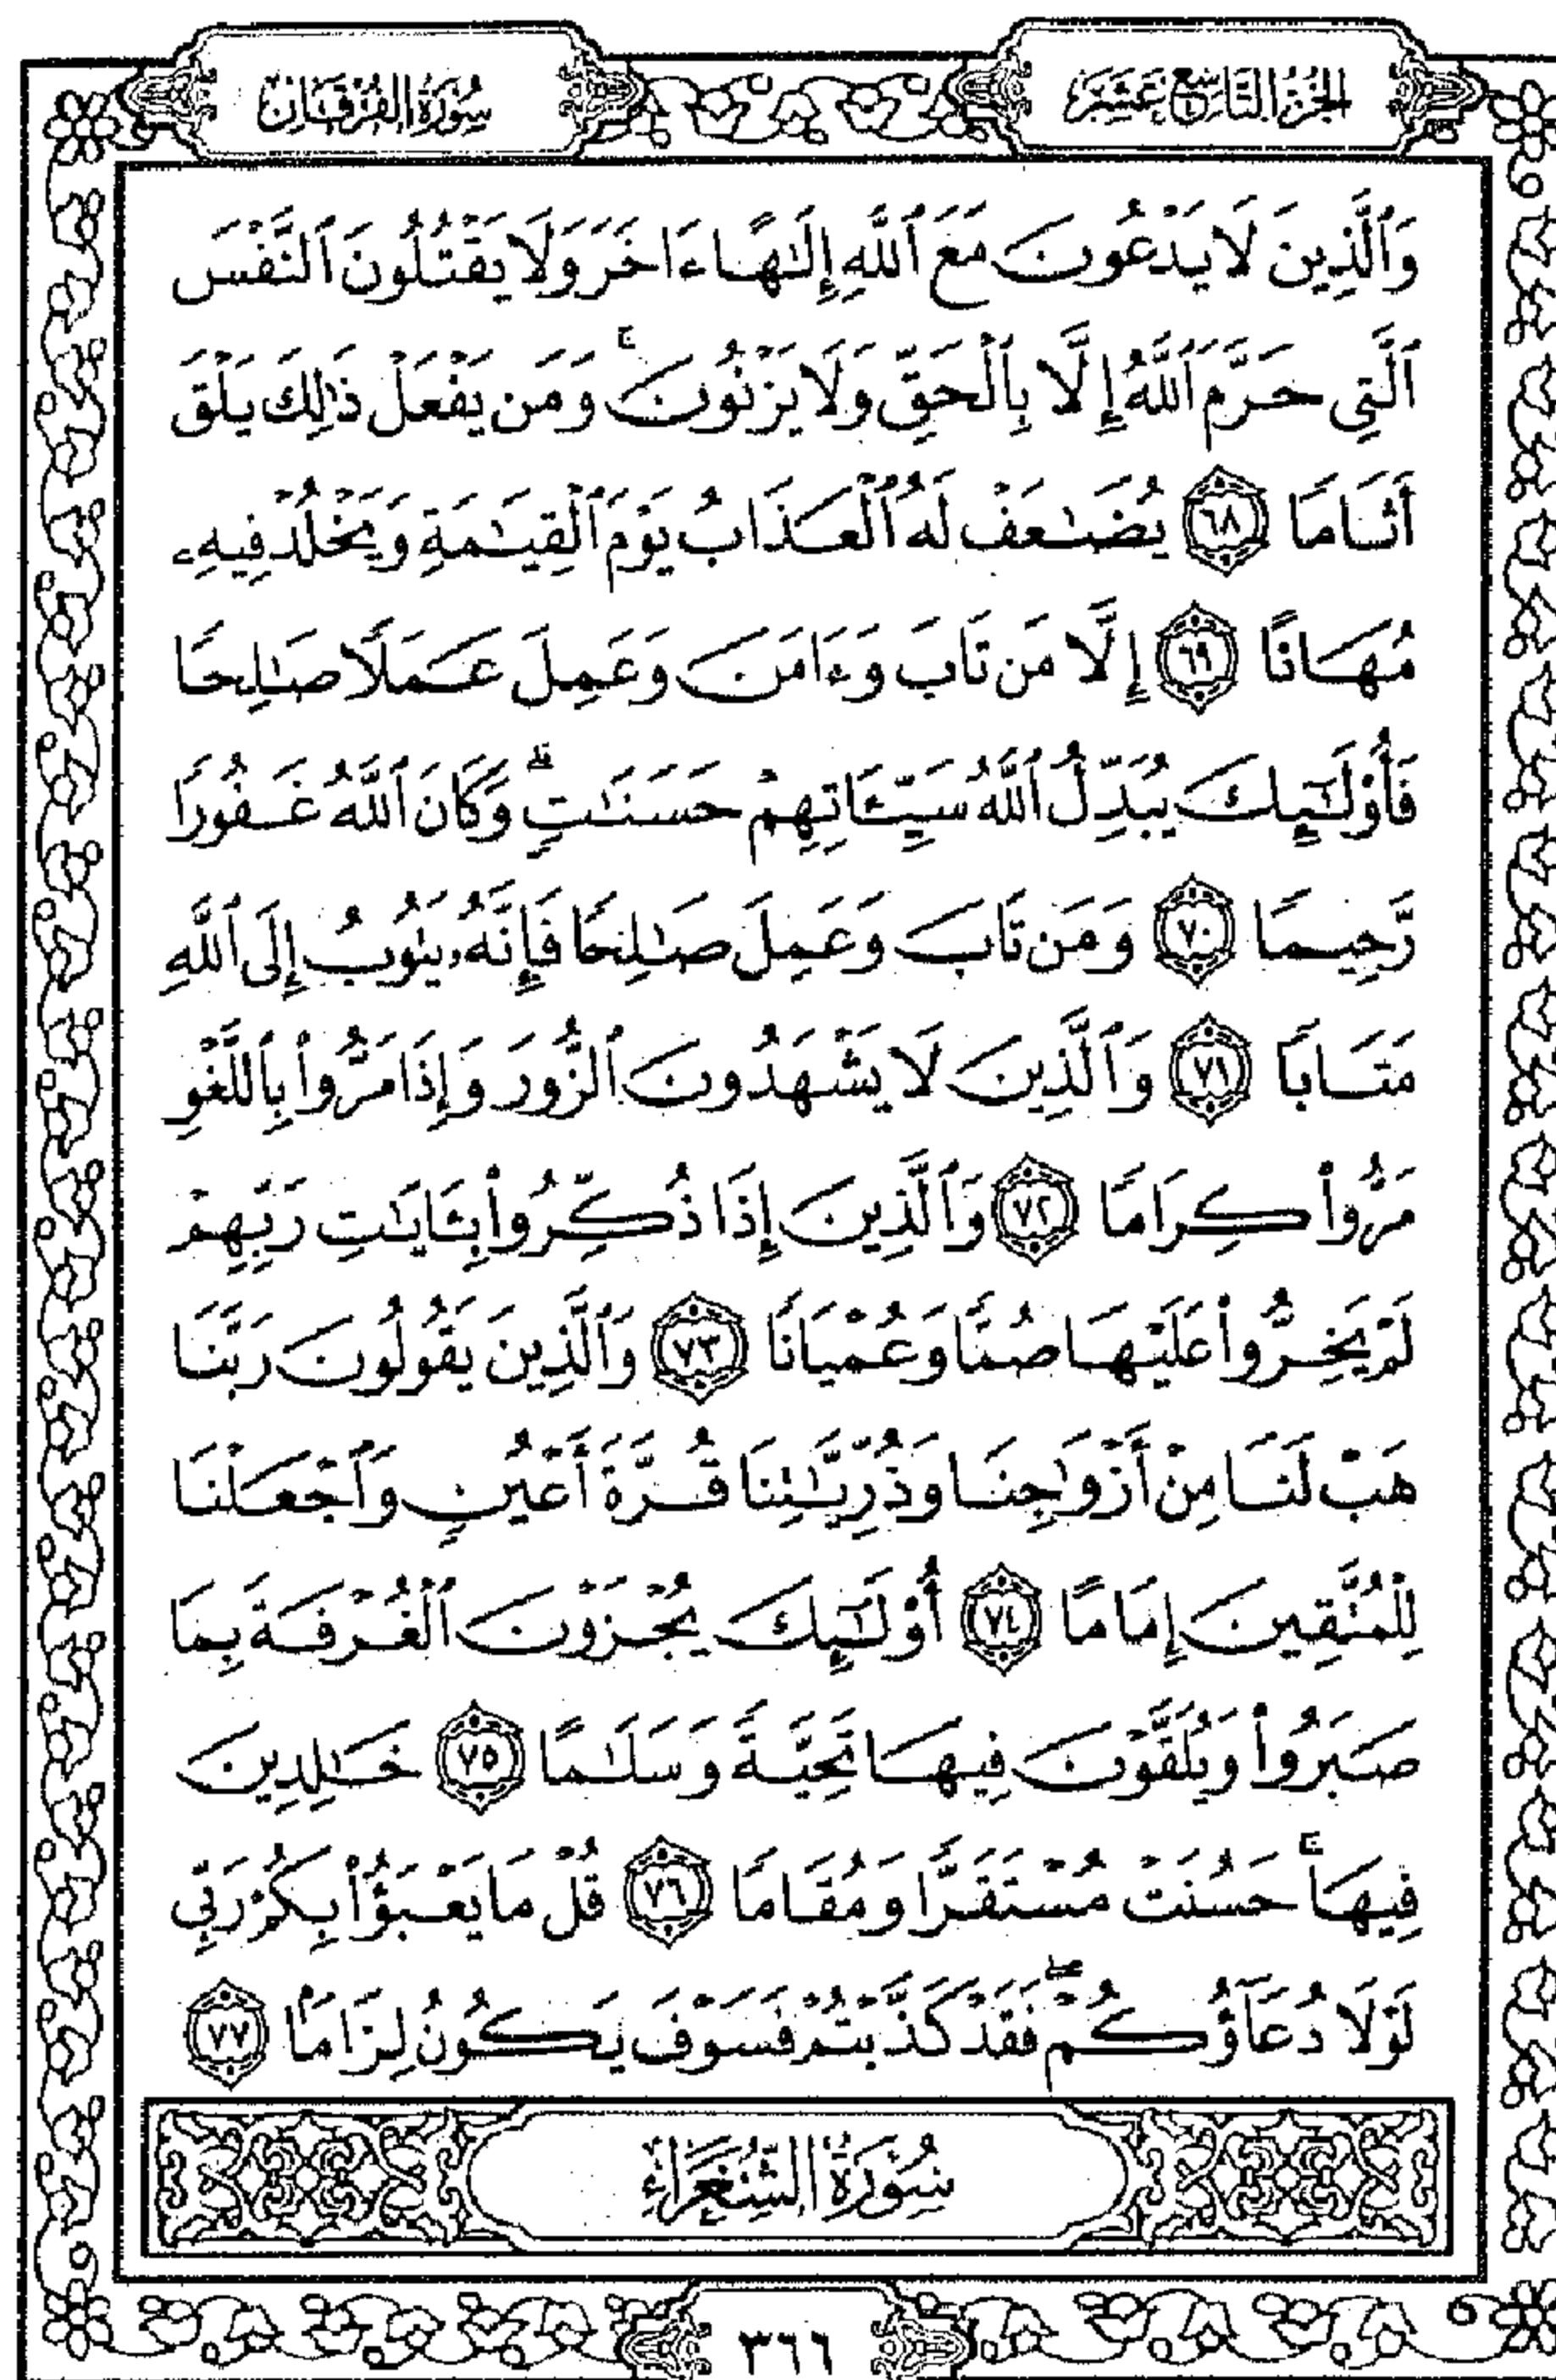 الجزء التاسع عشر
سورة الفرقان
وَٱلَّذِينَ لَا يَدْعُونَ مَعَ ٱللَّهِ إِلَٰهًا ءَاخَرَ وَلَا يَقْتُلُونَ ٱلنَّفْسَ
ٱلَّتِي حَرَّمَ ٱللَّهُ إِلَّا بِٱلْحَقِّ وَلَا يَزْنُونَ ۚ وَمَن يَفْعَلْ ذَٰلِكَ يَلْقَ
أَثَامًا ٦٨ يُضَٰعَفْ لَهُ ٱلْعَذَابُ يَوْمَ ٱلْقِيَٰمَةِ وَيَخْلُدْ فِيهِۦ
مُهَانًا ٦٩ إِلَّا مَن تَابَ وَءَامَنَ وَعَمِلَ عَمَلًا صَٰلِحًا
فَأُو۟لَٰٓئِكَ يُبَدِّلُ ٱللَّهُ سَيِّـَٔاتِهِمْ حَسَنَٰتٍ ۗ وَكَانَ ٱللَّهُ غَفُورًا
رَّحِيمًا ٧٠ وَمَن تَابَ وَعَمِلَ صَٰلِحًا فَإِنَّهُۥ يَتُوبُ إِلَى ٱللَّهِ
مَتَابًا ٧١ وَٱلَّذِينَ لَا يَشْهَدُونَ ٱلزُّورَ وَإِذَا مَرُّوا۟ بِٱللَّغْوِ
مَرُّوا۟ كِرَامًا ٧٢ وَٱلَّذِينَ إِذَا ذُكِّرُوا۟ بِـَٔايَٰتِ رَبِّهِمْ
لَمْ يَخِرُّوا۟ عَلَيْهَا صُمًّا وَعُمْيَانًا ٧٣ وَٱلَّذِينَ يَقُولُونَ رَبَّنَا
هَبْ لَنَا مِنْ أَزْوَٰجِنَا وَذُرِّيَّٰتِنَا قُرَّةَ أَعْيُنٍ وَٱجْعَلْنَا
لِلْمُتَّقِينَ إِمَامًا ٧٤ أُو۟لَٰٓئِكَ يُجْزَوْنَ ٱلْغُرْفَةَ بِمَا
صَبَرُوا۟ وَيُلَقَّوْنَ فِيهَا تَحِيَّةً وَسَلَٰمًا ٧٥ خَٰلِدِينَ
فِيهَا ۚ حَسُنَتْ مُسْتَقَرًّا وَمُقَامًا ٧٦ قُلْ مَا يَعْبَؤُا۟ بِكُمْ رَبِّي
لَوْلَا دُعَآؤُكُمْ ۖ فَقَدْ كَذَّبْتُمْ فَسَوْفَ يَكُونُ لِزَامًۢا ٧٧
سُورَةُ الشُّعَرَاءِ
٣٦٦